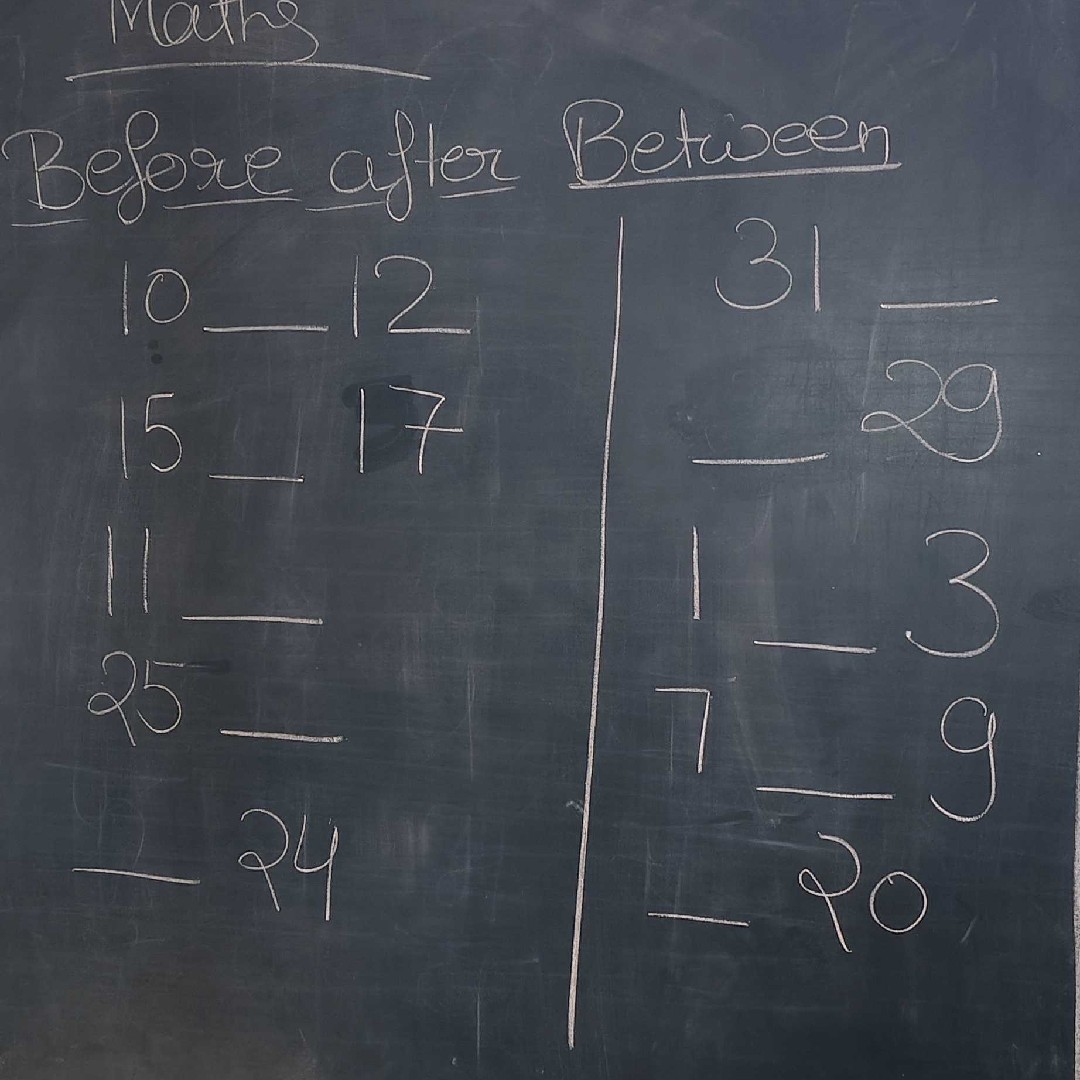 Maths
Before after Between
10 __ 12
15 __ 17
11 __
25 __
__ 24
31 __
__ 29
1 __ 3
7 __ 9
__ 20